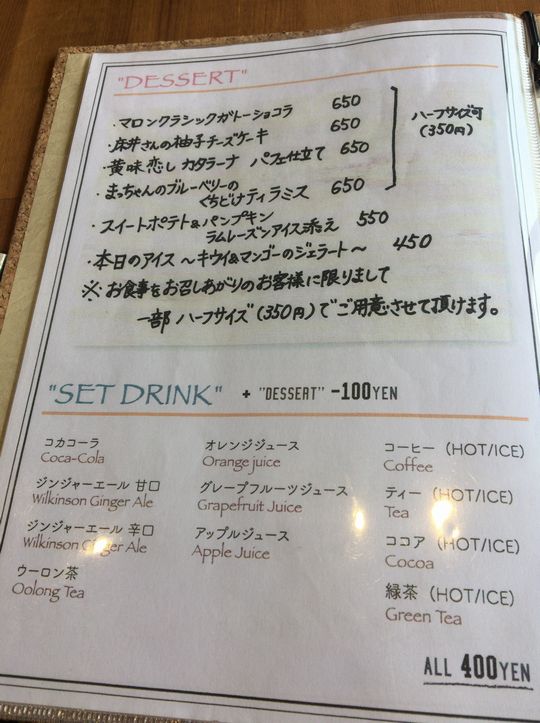 "DESSERT"
・マロンクラシックガトーショコラ 650
・床井さんの柚子チーズケーキ 650
・黄味恋し カタラーナ パフェ仕立て 650
・まっちゃんのブルーベリーの
くちどけティラミス 650
ハーフサイズ可
(350円)
・スイートポテト&パンプキン
ラムレーズンアイス添え 550
・本日のアイス ～キウイ&マンゴーのジェラート～ 450
※お食事をお召しあがりのお客様に限りまして
一部 ハーフサイズ(350円)でご用意させて頂けます。
"SET DRINK" + "DESSERT" -100YEN
コカコーラ
Coca-Cola
ジンジャーエール 甘口
Wilkinson Ginger Ale
ジンジャーエール 辛口
Wilkinson Ginger Ale
ウーロン茶
Oolong Tea
オレンジジュース
Orange juice
グレープフルーツジュース
Grapefruit Juice
アップルジュース
Apple Juice
コーヒー (HOT/ICE)
Coffee
ティー (HOT/ICE)
Tea
ココア (HOT/ICE)
Cocoa
緑茶 (HOT/ICE)
Green Tea
ALL 400YEN